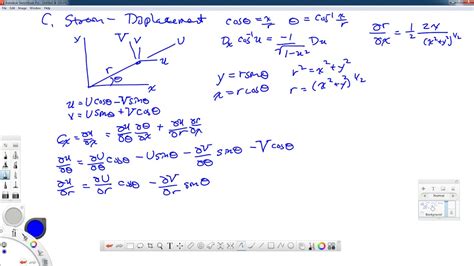 C. Strain - Displacement
cosθ = x/r θ = cos⁻¹ x/r
∂r/∂x = 1/2 2x/(x²+y²)^1/2
Dx cos⁻¹u =
y = rsinθ r² = x²+y²
x = rcosθ r = (x²+y²)^1/2
Y V U
u
r
θ
x
u = Ucosθ - Vsinθ
v = Usinθ + Vcosθ
εx = ∂u/∂x = ∂u/∂θ ∂θ/∂x + ∂u/∂r ∂r/∂x
∂u/∂θ = ∂U/∂θ cosθ - Usinθ - ∂V/∂θ sinθ - Vcosθ
∂u/∂r = ∂U/∂r cosθ - ∂V/∂r sinθ